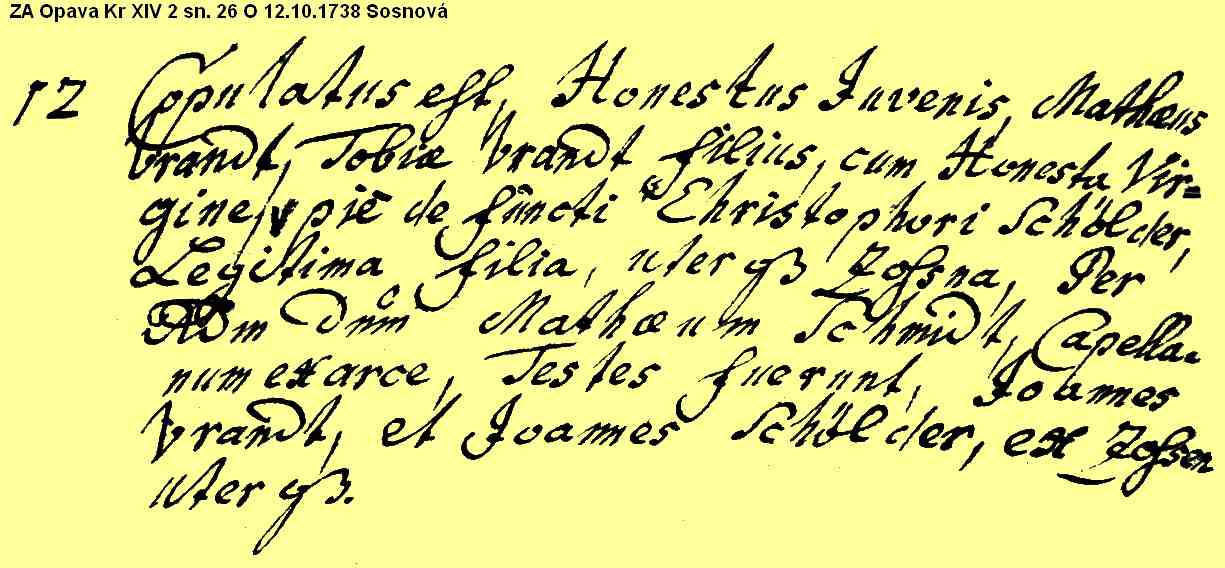 ZA Opava Kr XIV 2 sn. 26 O 12.10.1738 Sosnová
12 Copulatus est, Honestus Juvenis, Mathæus
brandt, Tobiæ brandt filius, cum Honesta Vir=
gine, piè de functi Christophori Schölder,
Legitima filia, uter qȝ Zossna, Per
Adm Dnm Mathæum Schmidt, Capella-
num ex arce, Testes fuerunt, Joannes
brandt, et Joannes Schölder, ex Zossen
uter qȝ.